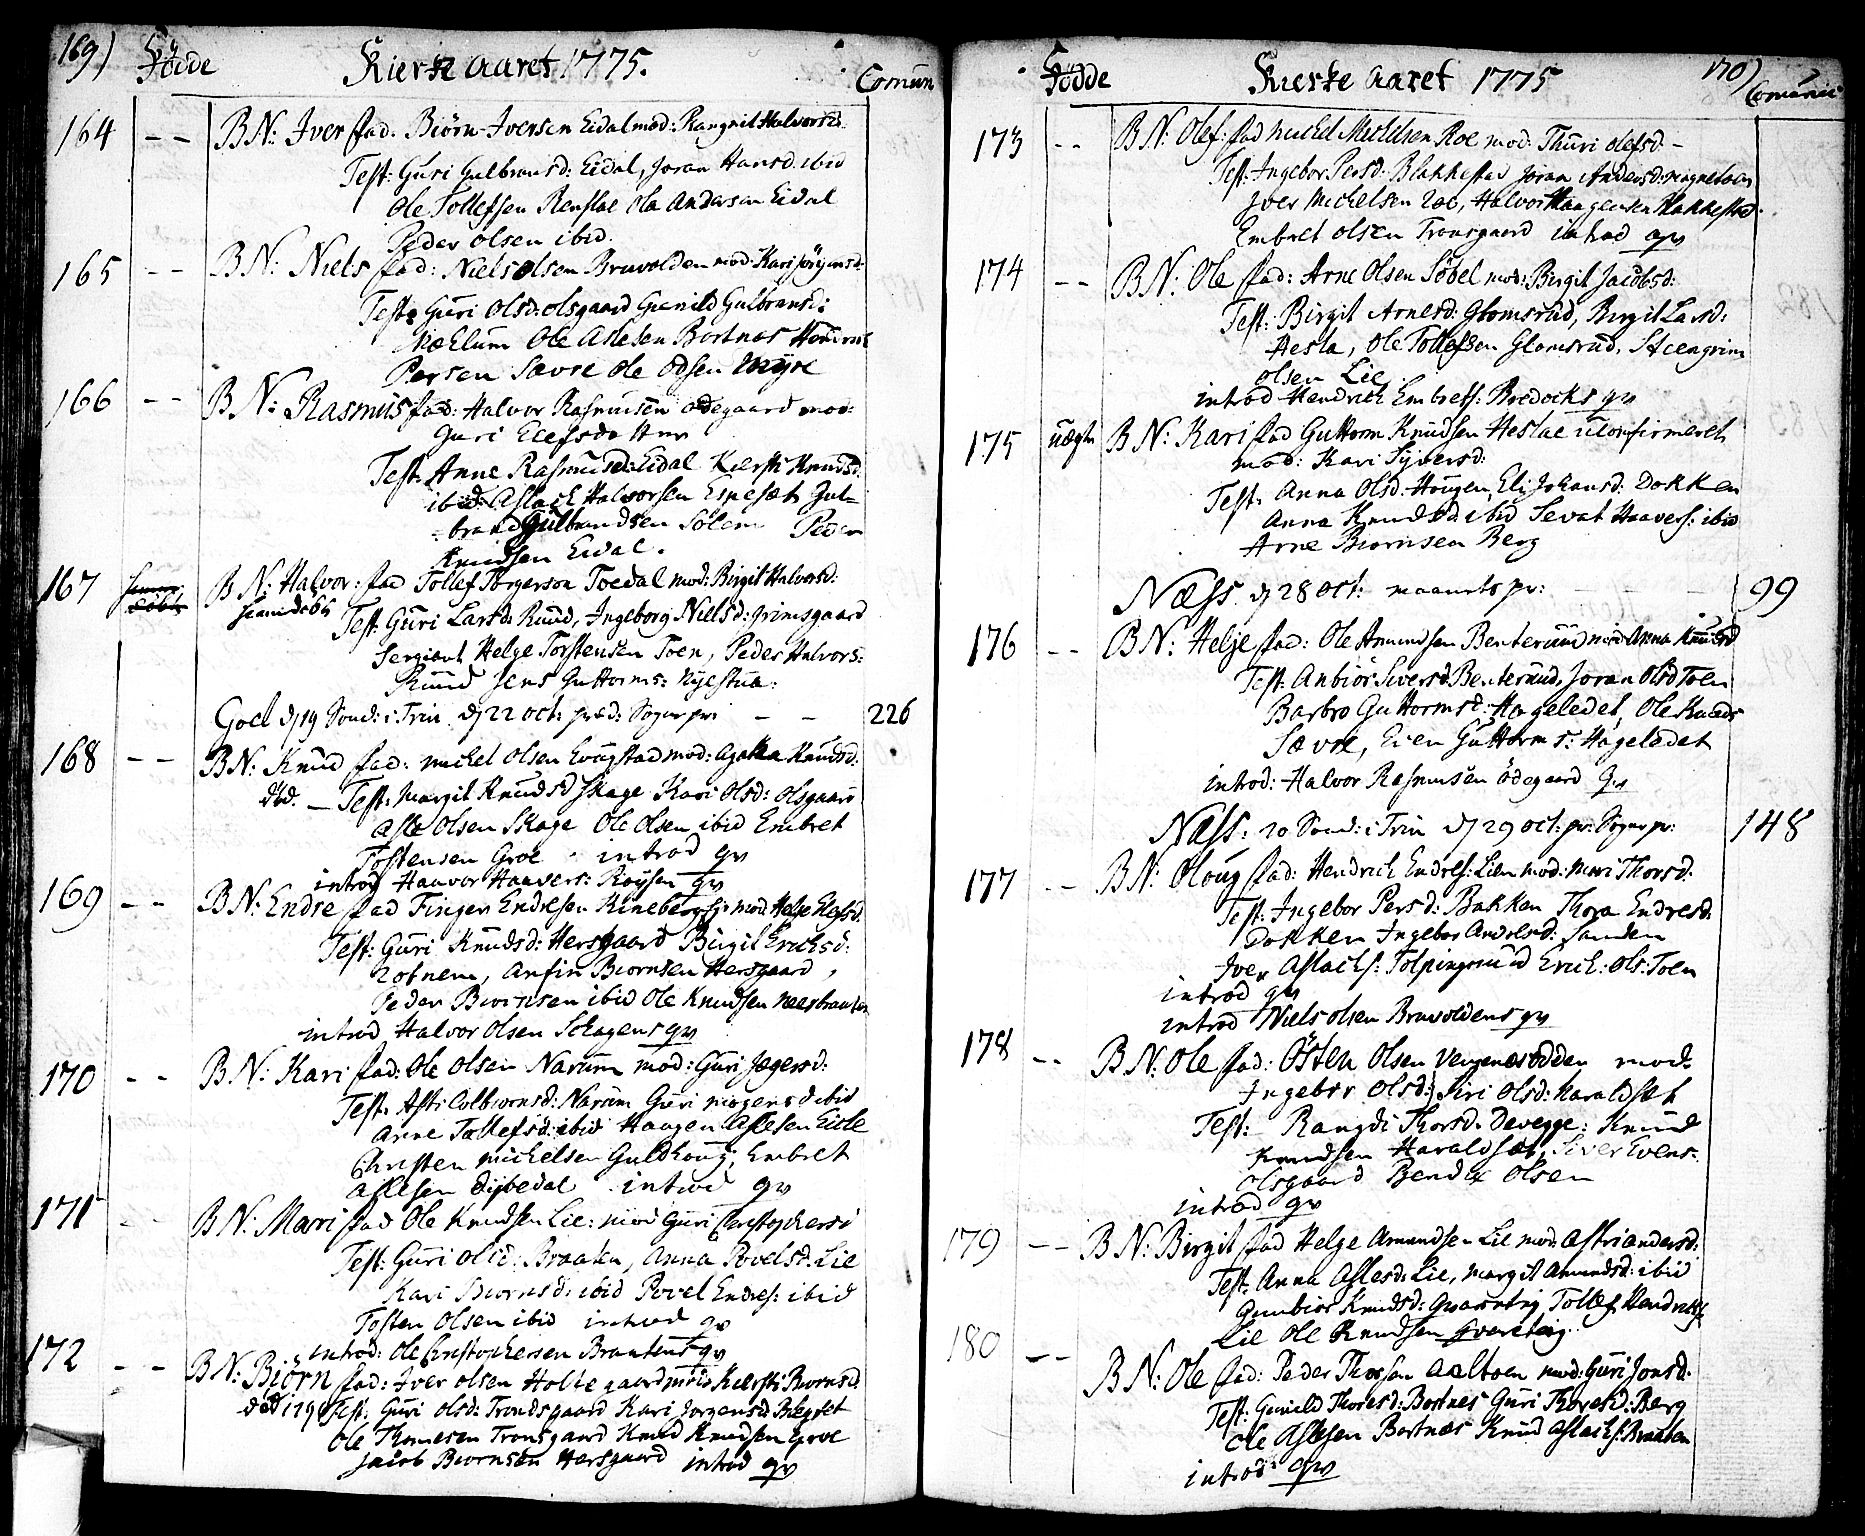 169)
Födde Kierke aaret 1775. Comūn
164 -- BN: Iver fad: Biörn Iversen Eidal mod: Rangnil Halvorsd:
Test: Gūri Gulbransd: Eidal, Joran Hansd: ibid
Ole Tollefsen Renslae Ola Andersen Eidal
Peder Olsen ibid
165 -- BN: Niels fad: Niels Olsen Bruvolden mod: Kari Jörgensd:
Test: Gūri Olsd: Olsgaard Gunild Gulbransd:
Mælum Ole Aslesen Bortnes
Persen Sævre Ole Odsen Myre
166 -- BN: Rasmūs fad: Halvor Rasmūsen ödegaard mod:
Guri
Test: Anne Rasmusd: Eidal Kiersti Knudsd:
ibid: Aslack Halvorsen Espesæt Gul-
brand Gulbrandsen Sölem Peder
Knudsen Eidal.
167 BN: Halvor: fad Tollef Torgerson Toedal mod: Birgit Halvorsd:
Test: Gūri Larsd: Rūūd, Ingeborg Nielsd: Grimsgaard
Sergiant Helge Torstensen Toen, Peder Halvors:
Rūūd Jens Guttorms: Nyestua:
Goel d/ 19 Sond: i Trin d/ 22 Oct: - - 226
168 -- BN: Knūd fad: Michel Olsen mod: Agatha Knūdsd:
Test: Margit Knūdsd Skage Kari Olsd: Olsgaard
Asle Olsen Skage Ole Olsen ibid Embret
Tostensen Groe introd qv
introd Haavor Haavers: Röysen qv
169 -- BN: Endre fad Finger Endresen Rineberg mod:
Test: Gūri Knūdsd: Hersgaard Birgit Erichsd:
Anfin Biornsen Hersgaard,
Peder Biornsen ibid Ole Knudsen
introd Halvor Olsen Schagens qv
170 -- BN: Kari fad: Ole Olsen Narūm mod: Gūri
Test: Colbiornsd: Narūm Gūri ibid
Anne Tollefsd: ibid Haagen Aslesen Eidle
Christen Michelsen Guldhoūg, Embret
Aslesen Dybedal introd qv
171 -- BN: Mari fad Ole Knudsen Lie: mod Gūri
Test: Gūri Olsd: Braaten, Anna Povelsd: Lie
Kari Biornsd: ibid Povel Endres: ibid
Tosten Olsen ibid introd qv
introd: Ole Christophersen Braatens qv
172 -- BN: Biörn fad: Iver Olsen mod Kiersti Biornsd.
Test: Gūri Olsd: Trondsgaard Kari Jorgensd:
Ole Thomesen Tronsgaard Knud Knudsen Groe
Jacob Biornsen Hersgaard introd qv
170)
Födde Kierke aaret 1775
173 -- BN: Olef: fad Michel Michelsen Roe mod: Thūri Olefsd:
Test: Ingebor Persd: Blakkestad Joran Andersd:
Iver Michelsen Roe, Halvor Haagensen Blakkestad
Embret Olsen Tronsgaard introd qv
174 -- BN: Ole fad: Arne Olsen Söbel mod: Birgit Jacobsd:
Test: Birgit Arnesd: Glomsrūd, Birgit Larsd:
Hesla, Ole Tollefsen Glomsrūd, Steengrim
Olsen Lie,
introd Hendrich Embrets: Bredochs qv
175 uægte BN: Kari fad Guttorm Knūdsen Heslae uConfirmeret
mod: Kari Syversd:
Test: Anna Olsd: Haūgen, Eli Johansd: Dokken
Anna Knūdsd ibid Sevat Haavers: ibid
Arne Biornsen Berg
Næss d/ 28 Oct: maanets pr: - - - 99
176 -- BN: Helje fad: Ole Amundsen Benterūūd mod Anna Knūdsd
Test: Anbiör Siversd: Benterūūd, Joran Olsd Toen
Barbro Guttormsd: Hageledet, Ole Knuds:
Sævre, Eien Guttorms: Hageledet
introd: Halvor Rasmusen ödegaard qv
Næss: 20 Sond: i Trin d/ 29 Oct: pr: Sogne pr: 148
177 -- BN: Oloūg fad: Hendrich Endres: Lien mod: Mari Thorsd:
Test: Ingebor Persd: Bakken Thora Endresd:
Dokken Ingebor Andersd: Sanden
Iver Aslachs: Tolpingrūūd Erich: Ols: Toen
introd qv
introd Niels Olsen Bruvoldens qv
178 -- BN: Ole fad: Östen Olsen mod:
Ingebor Olsd: Siri Olsd: Haraldsæt
Test: Rangdi Thorsd: Devegge: Knūd
Knudsen Haraldsæt, Siver Evens:
Olsgaard Bendix Olsen
introd qv
179 -- BN: Birgit fad Helge Amundsen Lie mod: Astri Andersd:
Test: Anna Aslesd: Lie, Margit Amundsd: ibid
Gunbior Knudsd: Tollef
Lie Ole Knudsen
180 -- BN: Ole fad: Peder Thorsen mod: Gūri Jonsd:
Test: Gunild Thoresd: Bortnes Gūri Thoresd: Berg
Ole Aslesen Bortnes Knud Aslachs: Braaten
introd qv